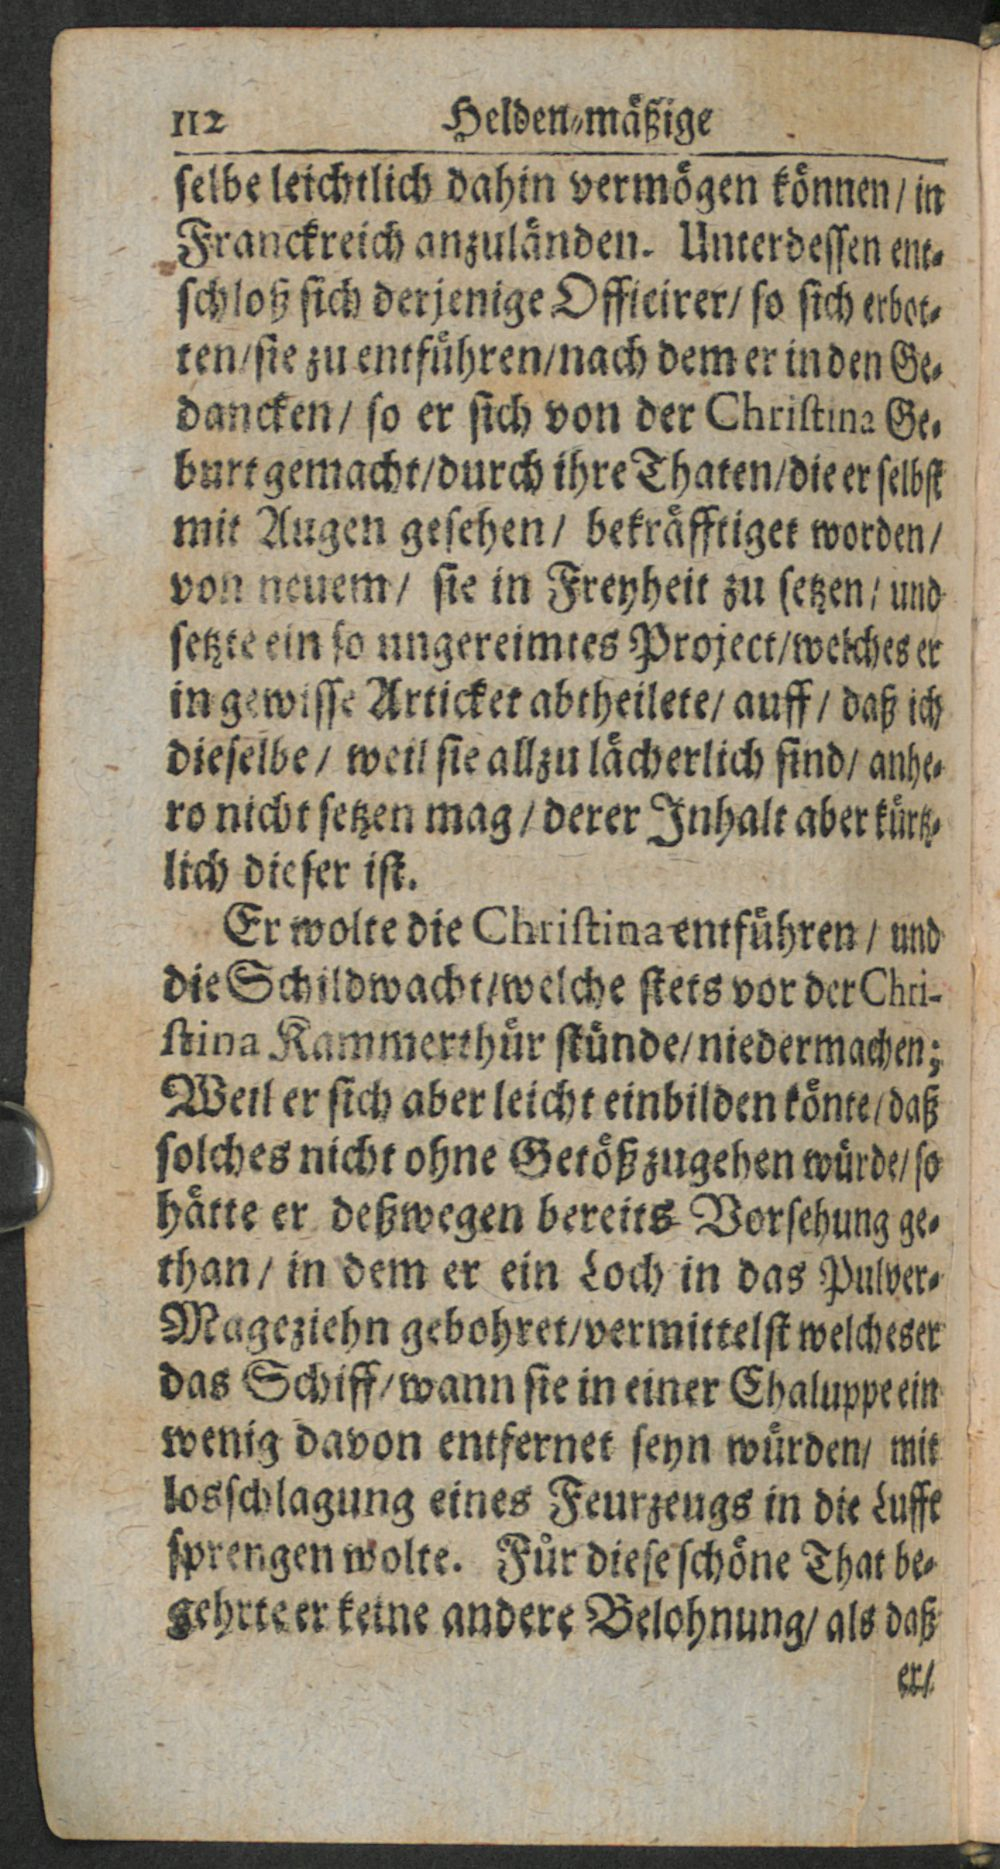 112 Helden-mäßige
selbe leichtlich dahin vermögen können / in
Franckreich anzuländen. Unterdessen ent-
schloß sich derjenige Officirer / so sich erbot-
ten / sie zu entführen / nach dem er in den Ge-
dancken / so er sich von der Christina Ge-
burt gemacht / durch ihre Thaten / die er selbst
mit Augen gesehen / bekräfftiget worden /
von neuem / sie in Freyheit zu setzen / und
setzte ein so ungereimtes Project / welches er
in gewisse Artickel abtheilete / auff / daß ich
dieselbe / weil sie allzu lächerlich sind / anhe-
ro nicht setzen mag / derer Inhalt aber kürtz-
lich dieser ist.
Er wolte die Christina entführen / und
die Schildwacht / welche stets vor der Chri-
stina Kammerthür stünde / niedermachen;
Weil er sich aber leicht einbilden könte / daß
solches nicht ohne Getöß zugehen würde / so
hätte er deßwegen bereits Vorsehung ge-
than / in dem er ein Loch in das Pulver-
Mageziehn gebohret / vermittelst welches er
das Schiff / wann sie in einer Chaluppe ein
wenig davon entfernet seyn würden / mit
losschlagung eines Feurzeugs in die Lufft
sprengen wolte. Für diese schöne That be-
gehrte er keine andere Belohnung / als daß
er /